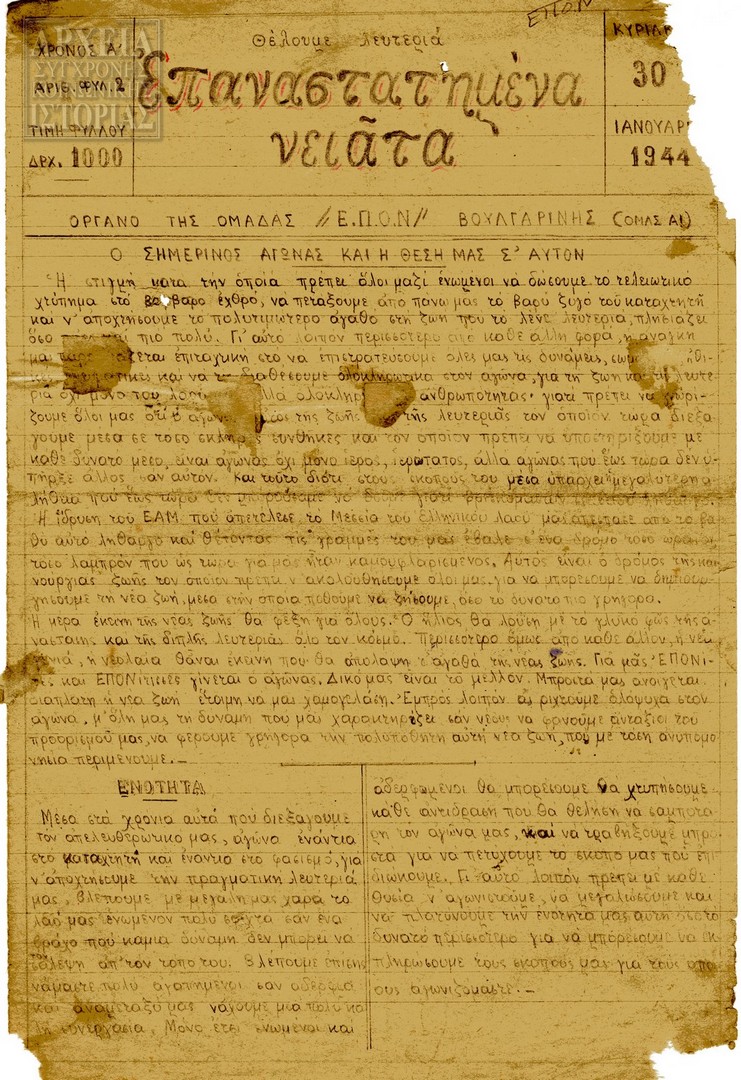 ΑΡΧΕΙΑ
ΣΥΓΧΡΟΝΗΣ
ΙΣΤΟΡΙΑΣ
ΕΠΟΝ
ΧΡΟΝΟΣ Α'
ΑΡΙΘ. ΦΥΛ. 2
ΤΙΜΗ ΦΥΛΛΟΥ
ΔΡΧ. 1000
Θέλουμε λευτεριά
Ἐπαναστατημένα
νειᾶτα
ΚΥΡΙΑΚ
30
ΙΑΝΟΥΑΡ
1944
ΟΡΓΑΝΟ ΤΗΣ ΟΜΑΔΑΣ "Ε.Π.Ο.Ν" ΒΟΥΛΓΑΡΙΝΗΣ (ΟΜΑΣ Α1)
Ο ΣΗΜΕΡΙΝΟΣ ΑΓΩΝΑΣ ΚΑΙ Η ΘΕΣΗ ΜΑΣ Σ' ΑΥΤΟΝ
Ἡ στιγμή κατα την ὁποία πρέπει ὅλοι μαζί ἑνωμένοι να δώσουμε το τελειωτικό
χτύπημα στό βάρβαρο ἐχθρό, να πετάξουμε ἀπό πάνω μας τό βαρύ ζυγό τοῦ καταχτητῆ
και ν' αποχτήσουμε το πολυτιμώτερο ἀγαθό στη ζωή που το λένε λευτεριά, πλησιάζει
ὅσο και πιο πολύ. Γι' αὐτό λοιπόν περισσότερο από κάθε ἄλλη φορά, η ἀνάγκη
μα παρουσιάζεται επιταχτική στο να επιστρατεύσουμε όλες μας τις δυνάμεις, ηθι
και να διαθέσουμε ὁλοκληρωτικά στον αγώνα, για τη ζωή και τη λευτε
ριά όχι μόνο του ἀλλά ὁλοκληρ ἀνθρωπότητας γιατί πρέπει να γνωρί
ζουμε ὅλοι μας ὅτι ὁ ἀγώνας της ζωῆς της λευτεριᾶς τον ὁποῖον τώρα διεξά
γουμε μέσα σε τόσο σκληρές συνθήκες και τον οποίον πρέπει νὰ υποστηρίξουμε με
κάθε δυνατό μέσο, εἶναι ἀγώνας ὄχι μόνο ἱερός, ἱερώτατος, ἀλλά ἀγώνας που ἕως τώρα δεν ὑ
πῆρξε ἄλλος σαν αυτόν. Και τοῦτο διότι στους σκοπούς του μέσα υπάρχει ἡ μεγαλύτερη α
λήθεια που ἕως τώρα δεν μπορούσαμε να
Ἡ ἵδρυση του ΕΑΜ που ἀπετέλεσε το Μεσσία του ἑλληνικού λαού μας ἀπό το βα
θύ αὐτό λήθαργο και θέτοντας τις γραμμές του μας έβαλε σ' ένα δρόμο τόσο ωραίο
τόσο λαμπρόν που ως τώρα για μας ἦταν καμουφλαρισμένος. Αὐτός εἶναι ο δρόμος της και
νούργιας ζωῆς τον οποίον πρεπει ν' ακολουθήσουμε όλοι μας, για να μπορέσουμε να δημιουρ
γήσουμε τη νέα ζωή, μέσα στην οποία ποθούμε να ζήσουμε, όσο το δυνατό πιο γρήγορα.
Ἡ μέρα εκείνη της νέας ζωῆς θα φέξη για όλους. Ὁ ἥλιος θα λούση με το γλυκό φως της α
νάστασης και τῆς διπλῆς λευτεριάς ὅλο τον κόσμο. Περισσότερο ὅμως από κάθε ἄλλον, ἡ νέα
γενιά, η νεολαία θἆναι ἐκείνη που θα ἀπολάψη τ' αγαθά τῆς νέας ζωῆς. Για μᾶς ἘΠΟΝί
τες και ΕΠΟΝίτισσες γίνεται ὁ ἀγῶνας. Δικό μας εἶναι τό μέλλον. Μπροστά μας ἀνοίγεται
διάπλατη ἡ νέα ζωή έτοιμη να μας χαμογελάση. Ἐμπρός λοιπόν ας ριχτοῦμε ὁλόψυχα στον
ἀγώνα, μ' ὅλη μας τη δύναμη που μας χαρακτηρίζει σαν νέους να φανοῦμε ἀντάξιοι του
προορισμοῦ μας, να φέρουμε γρήγορα την πολυπόθητη αὐτή νέα ζωή, που με τόση ανυπομο
νησία περιμένουμε.-
ΕΝΟΤΗΤΑ
Μέσα στά χρόνια αυτά που διεξάγουμε
τον απελευθερωτικό μας, αγώνα ενάντια
στο καταχτητή και ἐνάντια στο φασισμό, για
ν' ἀποχτήσουμε την πραγματική λευτεριά
μας, βλέπουμε με μεγάλη μας χαρά το
λαό μας ενωμένον πολύ σφιχτά σάν ένα
βράχο πού καμιά δύναμη δεν μπορεί να
τον σαλέψη απ' τον τόπο του. Βλέπουμε ἐπίσης
νἄμαστε πολύ αγαπημένοι σαν αδέρφια
και αναμεταξύ μας νἄχουμε μια πολύ κα
λή συνεργασία. Μόνο έτσι ενωμένοι και
ἀδερφωμένοι θα μπορέσουμε να χτυπήσουμε
κάθε αντίδραση που θα θελήση να σαμποτά
ρη τον ἀγώνα μας, καί νά τραβήξουμε μπρο
στά για να πετύχουμε το σκοπό μας πού ἐπι
διώκουμε. Γι' αὐτό λοιπόν πρέπει με κάθε
θυσία ν' αγωνιστοῦμε, να μεγαλώσουμε και
να πλατύνουμε την ενότητά μας αυτή όσο το
δυνατό περισσότερο για να μπορέσουμε να εκ
πληρώσουμε τους σκοπούς μας για τους οπο
ίους αγωνιζόμαστε.-